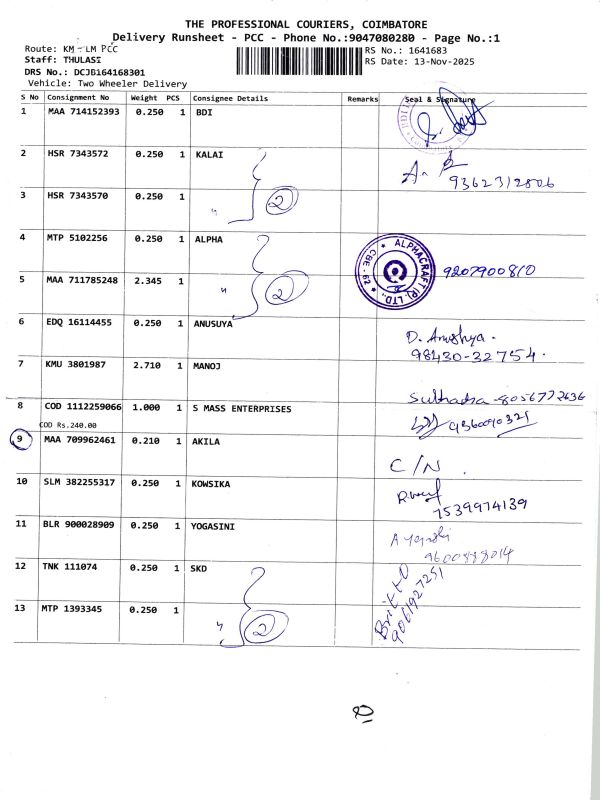 THE PROFESSIONAL COURIERS, COIMBATORE
Delivery Runsheet - PCC - Phone No.:9047080280 - Page No.:1
Route: KM - LM PCC
RS No.: 1641683
Staff: THULASI
RS Date: 13-Nov-2025
DRS No.: DCJB164168301
Vehicle: Two Wheeler Delivery
S No Consignment No Weight PCS Consignee Details Remarks Seal & Signature
1 MAA 714152393 0.250 1 BDI
2 HSR 7343572 0.250 1 KALAI
9362312806
3 HSR 7343570 0.250 1 " 2
4 MTP 5102256 0.250 1 ALPHA
ALPHACRAFT (P) LTD., CBE - 29
9207900810
5 MAA 711785248 2.345 1 " 2
6 EDQ 16114455 0.250 1 ANUSUYA
D. Anushya.
98430-32754.
7 KMU 3801987 2.710 1 MANOJ
8056772636
8 COD 1112259066 1.000 1 S MASS ENTERPRISES
9360090321
COD Rs.240.00
9 MAA 709962461 0.210 1 AKILA
C/N.
10 SLM 382255317 0.250 1 KOWSIKA
7539974139
11 BLR 900028909 0.250 1 YOGASINI
9600888014
12 TNK 111074 0.250 1 SKD
Britto
9061927251
13 MTP 1393345 0.250 1 " 2